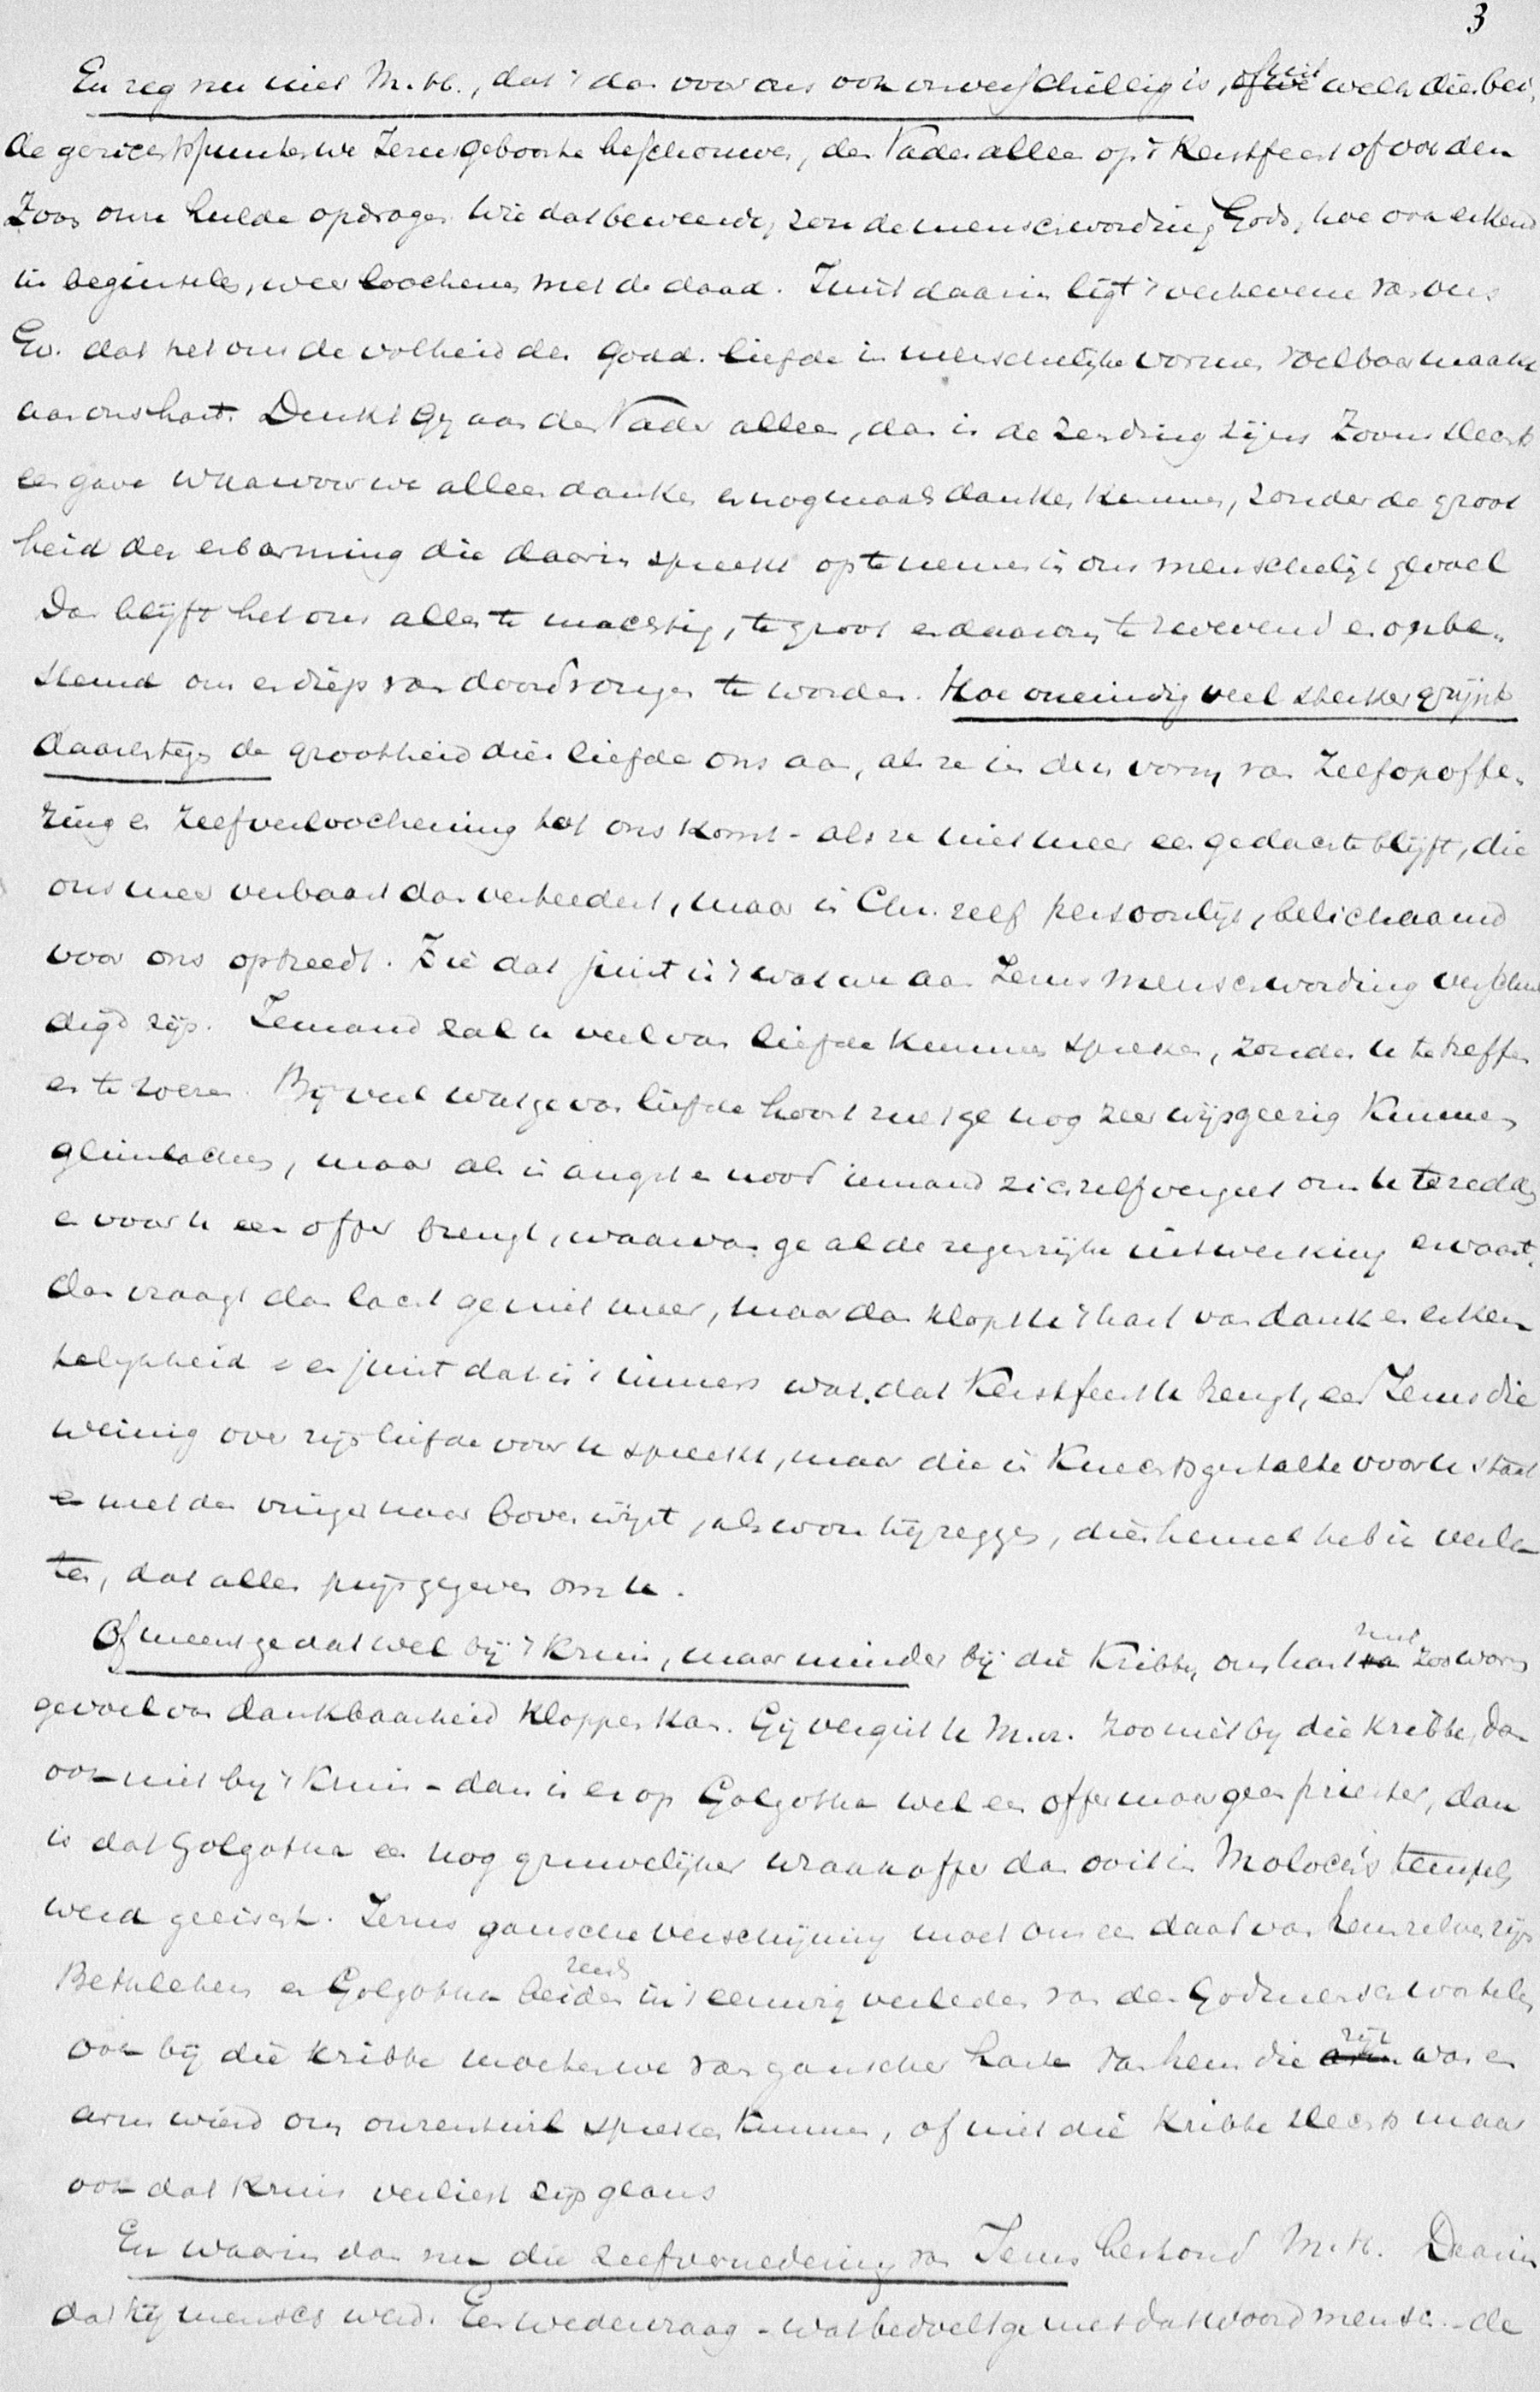 3
En zeg nu niet M. H., dat 't dan voor ons ook onverschillig is, uit welk dier bei,
de gezichtspunten we Jezus geboorte beschouwen, den Vader alleen op 't Kerstfeest of ook den
Zoon onze hulde opdragen. Wie dat beweerde, zou de menschwording Gods, hoe ook erkend
in beginselen, weer loochenen met de daad. Juist daarin ligt 't verhevene van ons
Ev. dat het ons de volheid der Godd. liefde in menschelijke vormen voelbaar maakt
aan ons hart. Denkt Gij aan den Vader alleen, dan is de zending zijns Zoons slechts
een gave waarvoor we alleen danken en nogmaals danken kunnen, zonder de groot
heid der erbarming die daarin spreekt op te nemen in ons menschelijk gevoel
Dan blijft het ons alles te machtig, te groot en daarom te zwevend en onbe„
stemd om er diep van doordrongen te worden. Hoe oneindig veel sterker grijpt
daarentegen de grootheid dier liefde ons aan, als ze in den vorm van zelfopoffe„
ring en zelfverloochening tot ons komt - als ze niet meer een gedachte blijft, die
ons meer verbaast dan verteedert, maar in Chr. zelf persoonlijk, belichaamd
voor ons optreedt. Zie dat juist is 't wat we aan Jezus menschwording verschul
digd zijn. Iemand zal u veel van liefde kunnen spreken, zonder u te treffen
en te roeren. Bij veel wat ge van liefde hoort zult ge nog zeer wijsgeerig kunnen
glimlachen, maar als in angst en nood iemand zichzelf vergeet om u te redden
en voor u een offer brengt, waarvan ge al de zegenrijke uitwerking ervaart,
dan vraagt dan lacht ge niet meer, maar dan klopt u 't hart van dank en erken
telijkheid - en juist dat is 't immers wat dat Kerstfeest u brengt, een Jezus die
weinig over zijn liefde voor u spreekt, maar die in Knechtsgestalte voor u staat
en met den vinger naar boven wijst, als wou hij zeggen, dien hemel heb ik verla
ten, dat alles prijsgegeven om u.
Of meent ge dat wel bij 't Kruis, maar minder bij die Kribbe, ons hart met zoo warm
gevoel van dankbaarheid kloppen kan. Gij vergist u M. H. Zoo niet bij die kribbe, dan
ook niet bij 't Kruis - dan is er op Golgotha wel een offer maar geen priester, dan
is dat Golgotha een nog gruwelijker wraakoffer dan ooit in Moloch's tempels
werd geeischt. Jezus gansche verschijning moet ons een daad van hemzelven zijn
Bethlehem en Golgotha beiden reeds in 't eeuwig verleden van den Godmensch wortelen
ook bij die kribbe moeten we van ganscher harte van hem die rijk was en
arm wierd om onzentwil spreken kunnen, of niet die Kribbe slechts maar
ook dat Kruis verliest zijn glans
En waarin dan nu die zelfvernedering van Jezus bestond M. H. Daarin
dat hij mensch werd. Een wedervraag - wat bedoelt ge met dat woord mensch. - de